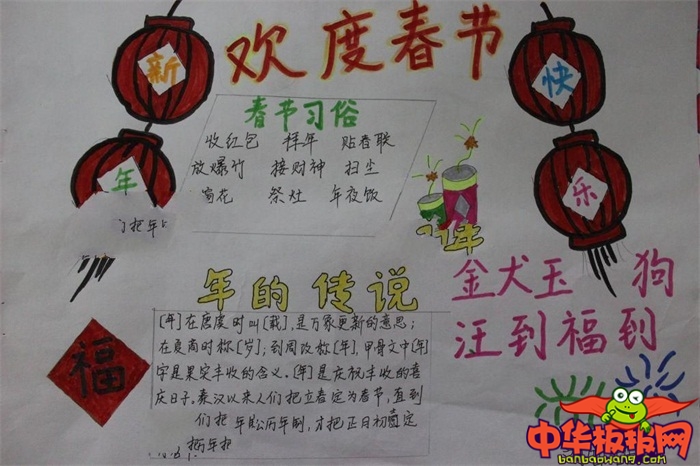 欢度春节
新
年
快
乐
春节习俗
收红包 拜年 贴春联
放爆竹 接财神 扫尘
窗花 祭灶 年夜饭
年的传说
[年]在唐虞时叫[载],是万象更新的意思;
在夏商时称[岁];到周改称[年],甲骨文中[年]
字是果实丰收的含义。[年]是庆祝丰收的喜
庆日子,秦汉以来人们把立春定为春节,直到
们把
年制,才把正月初壹定
福
金犬玉 狗
汪到福到
中华板报网
banbaowang.com